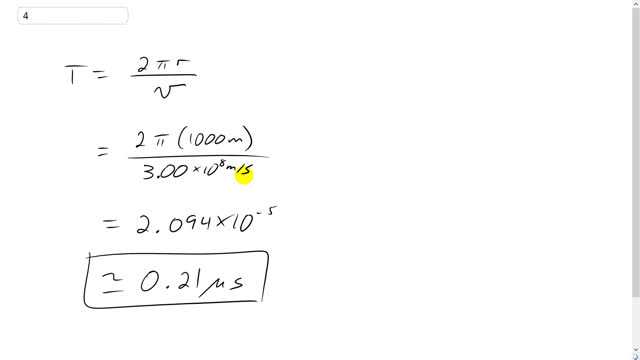 4
T = 2πr / v
= 2π(1000m) / 3.00×10⁸m/s
= 2.094×10⁻⁵
≃ 0.21μs